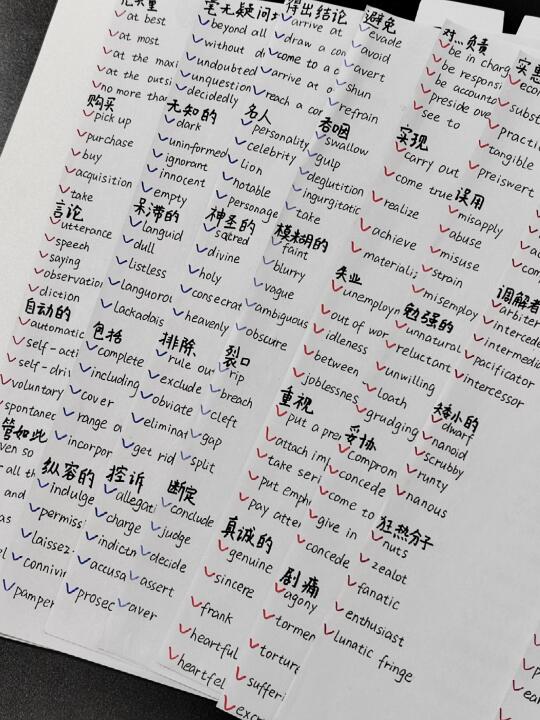 at best
at most
at the maxi
at the outsi
no more than
购买
pick up
purchase
buy
acquisition
take
言论
utterance
speech
saying
observation
diction
自动的
automatic
self-acti
self-dri
voluntary
spontaneo
管如此
ven so
r all th
and
as
毫无疑问
beyond all
without d
undoubted
unquestion
decidedly
无知的
dark
uninformed
ignorant
innocent
empty
呆滞的
languid
dull
listless
languorou
lackadais
包括
complete
including
cover
range a
incorpor
纵容的
indulge
permiss
laissez-
connivi
pamper
得出结论
arrive at
draw a con
come to a c
arrive at o
reach a con
名人
personality
celebrity
lion
notable
personage
神圣的
sacred
divine
holy
consecrat
heavenly
排除
rule our
exclude
obviate
eliminat
get rid
控诉
allegati
charge
indictm
accusa
prosec
避免
evade
avoid
avert
shun
refrain
吞咽
swallow
gulp
deglutition
ingurgitatio
take
模糊的
faint
blurry
vague
ambiguous
obscure
裂口
rip
breach
cleft
gap
split
断定
conclude
judge
decide
assert
aver
be in charg
be responsi
be accounta
preside ove
see to
实现
carry out
come true
realize
achieve
materiali
失业
unemploym
out of wor
idleness
between
joblessnes
重视
put a pre
attach im
take seri
put emph
pay atte
真诚的
genuine
sincere
frank
heartful
heartfel
econ
subst
practic
tangible
preiswert
误用
misapply
abuse
misuse
strain
misemploy
勉强的
unnatural
reluctant
unwilling
loath
grudging
妥协
comprom
concede
come to
give in
concede
剧痛
agony
tormen
torture
sufferi
excr
调解者
arbiter
intercede
intermedi
pacificator
intercessor
矮小的
dwarf
nanoid
scrubby
runty
nanous
狂热分子
nuts
zealot
fanatic
enthusiast
lunatic fringe